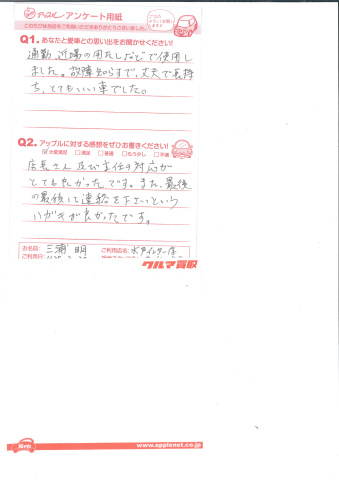 アップル アンケート用紙
このたびは当店をご利用いただきありがとうございました。
Q1. あなたと愛車との思い出をお聞かせください!
通勤、近場の用たしなどで使用し
ました。故障知らずで、丈夫で長持
ち、とてもいい車でした。
Q2. アップルに対する感想をぜひお書きください!
大変満足 満足 普通 もう少し 不満
店長さん 及び主任の対応が
とても良かったです。また、最後
の最後に連絡を下さいという
ハガキが良かったです。
お名前: 三浦 明 ご利用店名: 水戸インター店
ご利用日
クルマ買取
Apple
www.applenet.co.jp